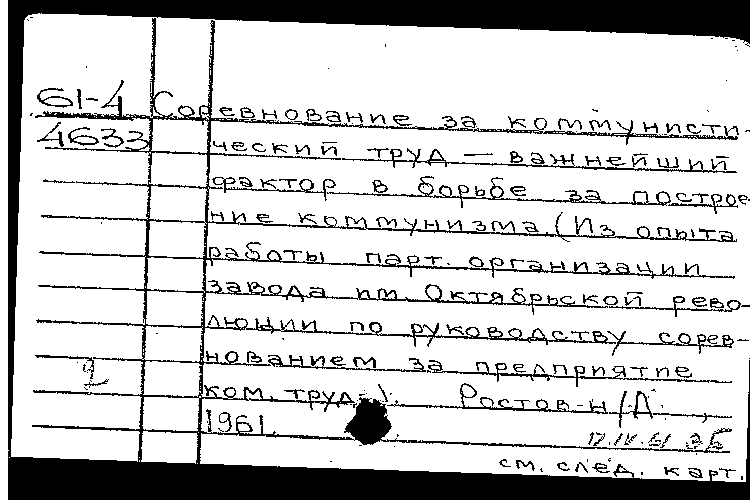 61-4 Соревнование за коммунисти-
4633 ческий труд — важнейший
фактор в борьбе за построе
ние коммунизма. (Из опыта
работы парт. организации
завода им. Октябрьской рево-
люции по руководству сорев-
нованием за предприятие
2 ком. труда). Ростов-н/Д.,
1961.
17.IV.61 ЗБ
см. след. карт.